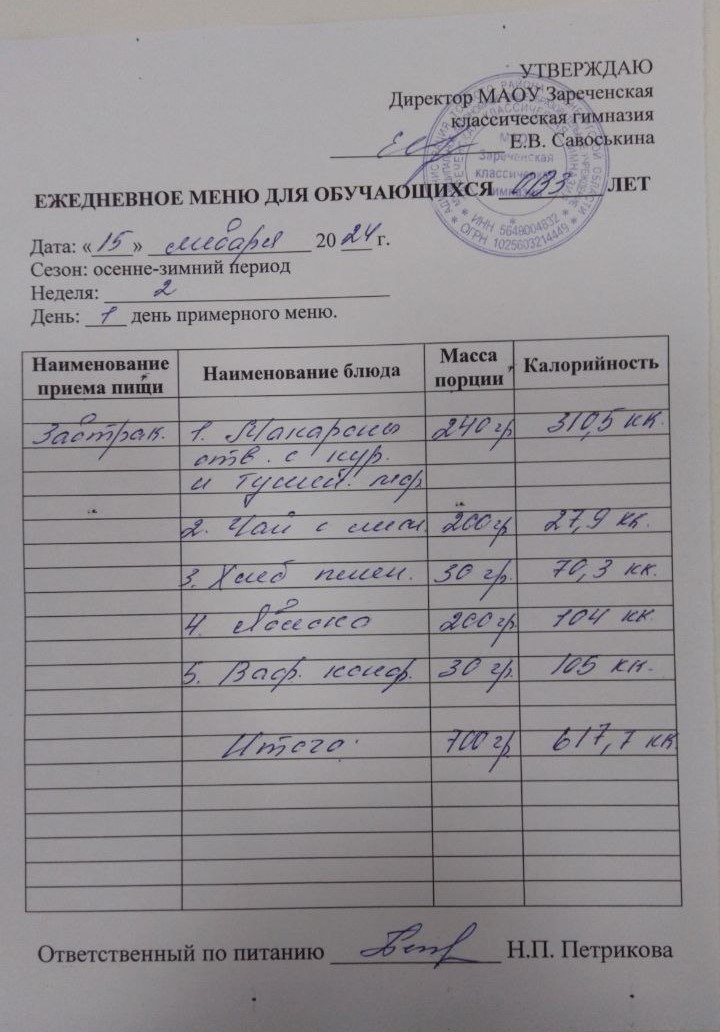 УТВЕРЖДАЮ
Директор МАОУ Зареченская
классическая гимназия
Е.В. Савоськина
МАОУ
Зареченская
классическая
гимназия
ИНН 5649004832
ОГРН 1025603214449
ЕЖЕДНЕВНОЕ МЕНЮ ДЛЯ ОБУЧАЮЩИХСЯ ОВЗ ЛЕТ
Дата: «15» января 2024 г.
Сезон: осенне-зимний период
Неделя: 2
День: 1 день примерного меню.
Наименование приема пищи Наименование блюда Масса порции Калорийность
Завтрак. 1. Макароны 240 гр 310,5 кк.
отв. с кур.
и тушен.
2. Чай с лим. 200 гр 27,9 кк.
3. Хлеб пшен. 30 гр. 70,3 кк.
4. Яблоко 200 гр 104 кк.
5. Ваф. конф. 30 гр. 105 кк.
Итого: 700 гр. 617,7 кк.
Ответственный по питанию Н.П. Петрикова